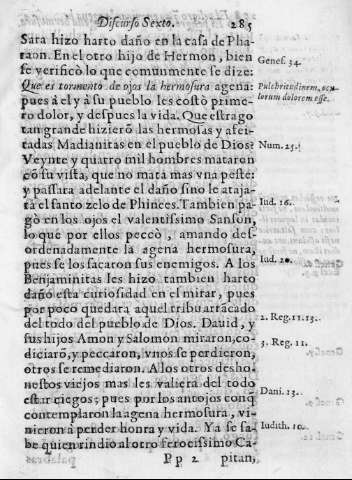 Discurso Sexto. 285
Sara hizo harto daño en la casa de Pha-
raon. En el otro hijo de Hermon, bien
se verificò lo que comunmente se dize:
Que es tormento de ojos la hermosura agena:
pues à el y à su pueblo les costò prime-
ro dolor, y despues la vida. Que estrago
tan grande hizierõ las hermosas y afei-
tadas Madianitas en el pueblo de Dios?
Veynte y quatro mil hombres mataron
cõ su vista, que no mata mas vna peste:
y passara adelante el daño sino le ataja-
rà el santo zelo de Phinees. Tambien pa-
gò en los ojos el valentissimo Sanson,
lo que por ellos peccò, amando des-
ordenadamente la agena hermosura,
pues se los sacaron sus enemigos. A los
Benjaminitas les hizo tambien harto
daño esta curiosidad en el mirar, pues
por poco quedara aquel tribu arracado
del todo del pueblo de Dios. Dauid, y
sus hijos Amon y Salomon miraron, co-
diciarõ, y peccaron, vnos se perdieron,
otros se remediaron. A los otros desho-
nestos viejos mas les valiera del todo
estar ciegos; pues por los antojos conq̃
contemplaron la agena hermosura, vi-
nieron à perder honra y vida. Ya se sa-
be quien rindio al otro ferocissimo Ca-
Pp 2 pitan,
Genes. 34.
Pulchritudinem, ocu-
lorum dolorem esse.
Num. 25.
Iud. 16.
Iud. 20.
2. Reg. 11. 13.
3. Reg. 11.
Dani. 13.
Iudith. 10.